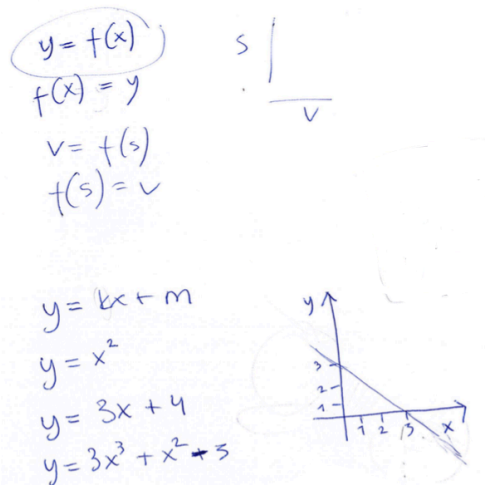 y = f(x)
f(x) = y
v = f(s)
f(s) = v
s
v
y = kx + m
y = x²
y = 3x + 4
y = 3x³ + x² + 5
y
3
2
1
1 2 3 x